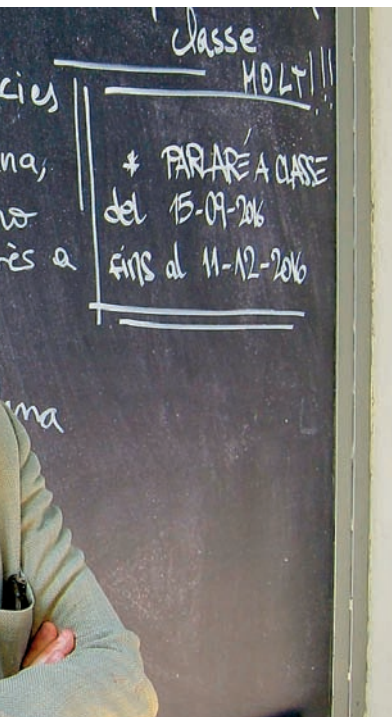 classe
MOLT!!!
cies
na,
* PARLARÉ A CLASSE
del 15-09-2016
ès a
fins al 11-12-2016
na